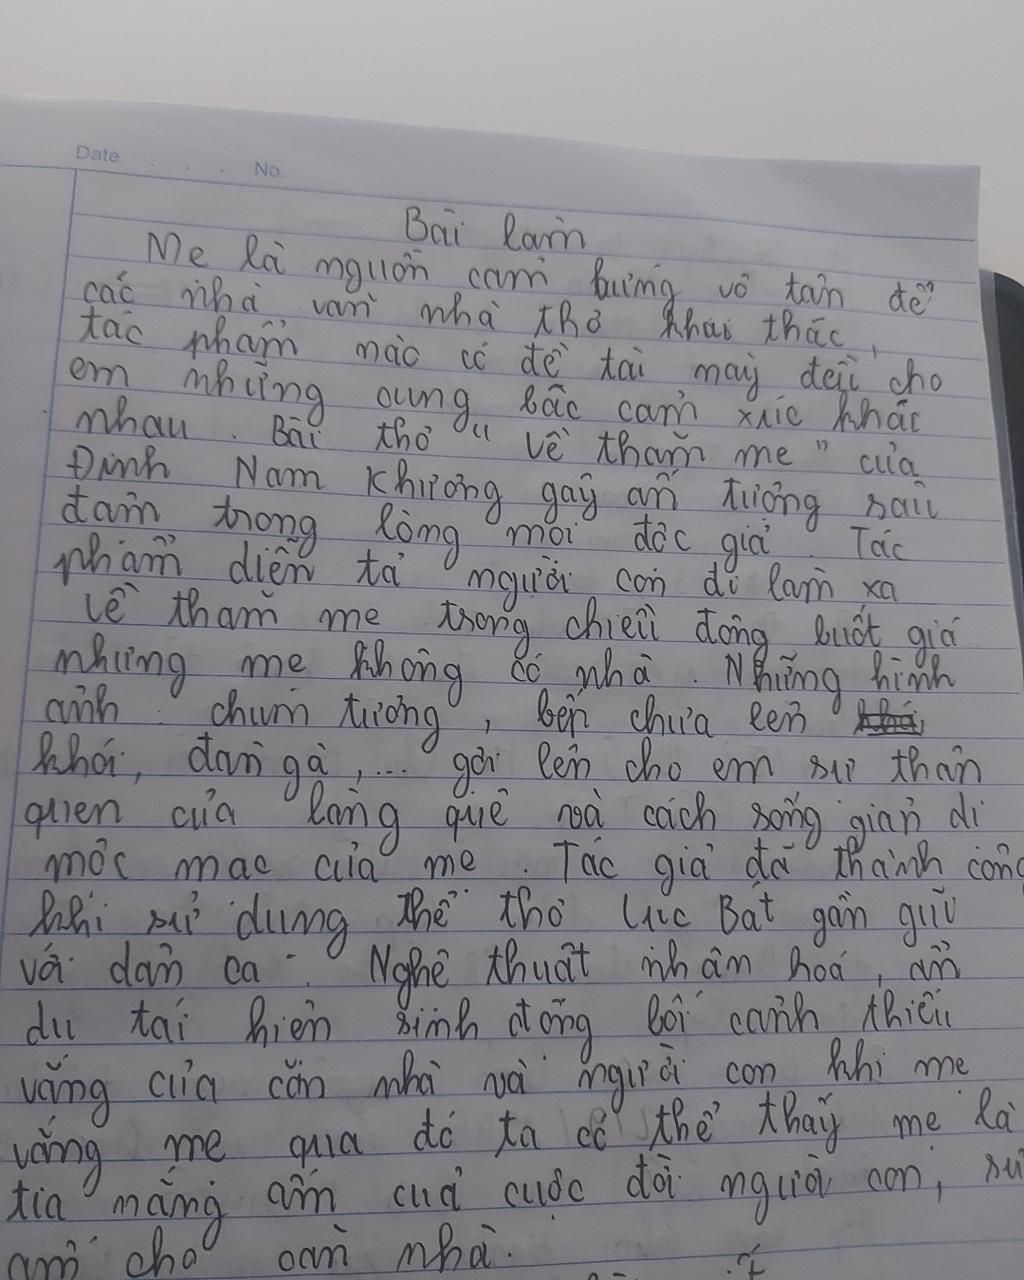 Date . . . No.
Bài làm
Mẹ là nguồn cảm hứng vô tận để
các nhà văn nhà thơ khai thác,
tác phẩm nào có đề tài này đều cho
em những cung bậc cảm xúc khác
nhau. Bài thơ "Về thăm mẹ" của
Đinh Nam Khương gây ấn tượng sâu
đậm trong lòng mỗi độc giả. Tác
phẩm diễn tả người con đi làm xa
về thăm mẹ trong chiều đông buốt giá
nhưng mẹ không có nhà. Những hình
ảnh chum tương, bếp chưa lên
khói, đàn gà,... gợi lên cho em sự thân
quen của làng quê và cách sống giản dị
mộc mạc của mẹ. Tác giả đã thành công
khi sử dụng thể thơ Lục Bát gần gũi
với dân ca. Nghệ thuật nhân hoá, ẩn
dụ tái hiện sinh động bối cảnh thiếu
vắng của căn nhà và người con khi mẹ
vắng mẹ qua đó ta có thể thấy mẹ là
tia nắng ấm của cuộc đời người con, sự
ấm cho căn nhà.